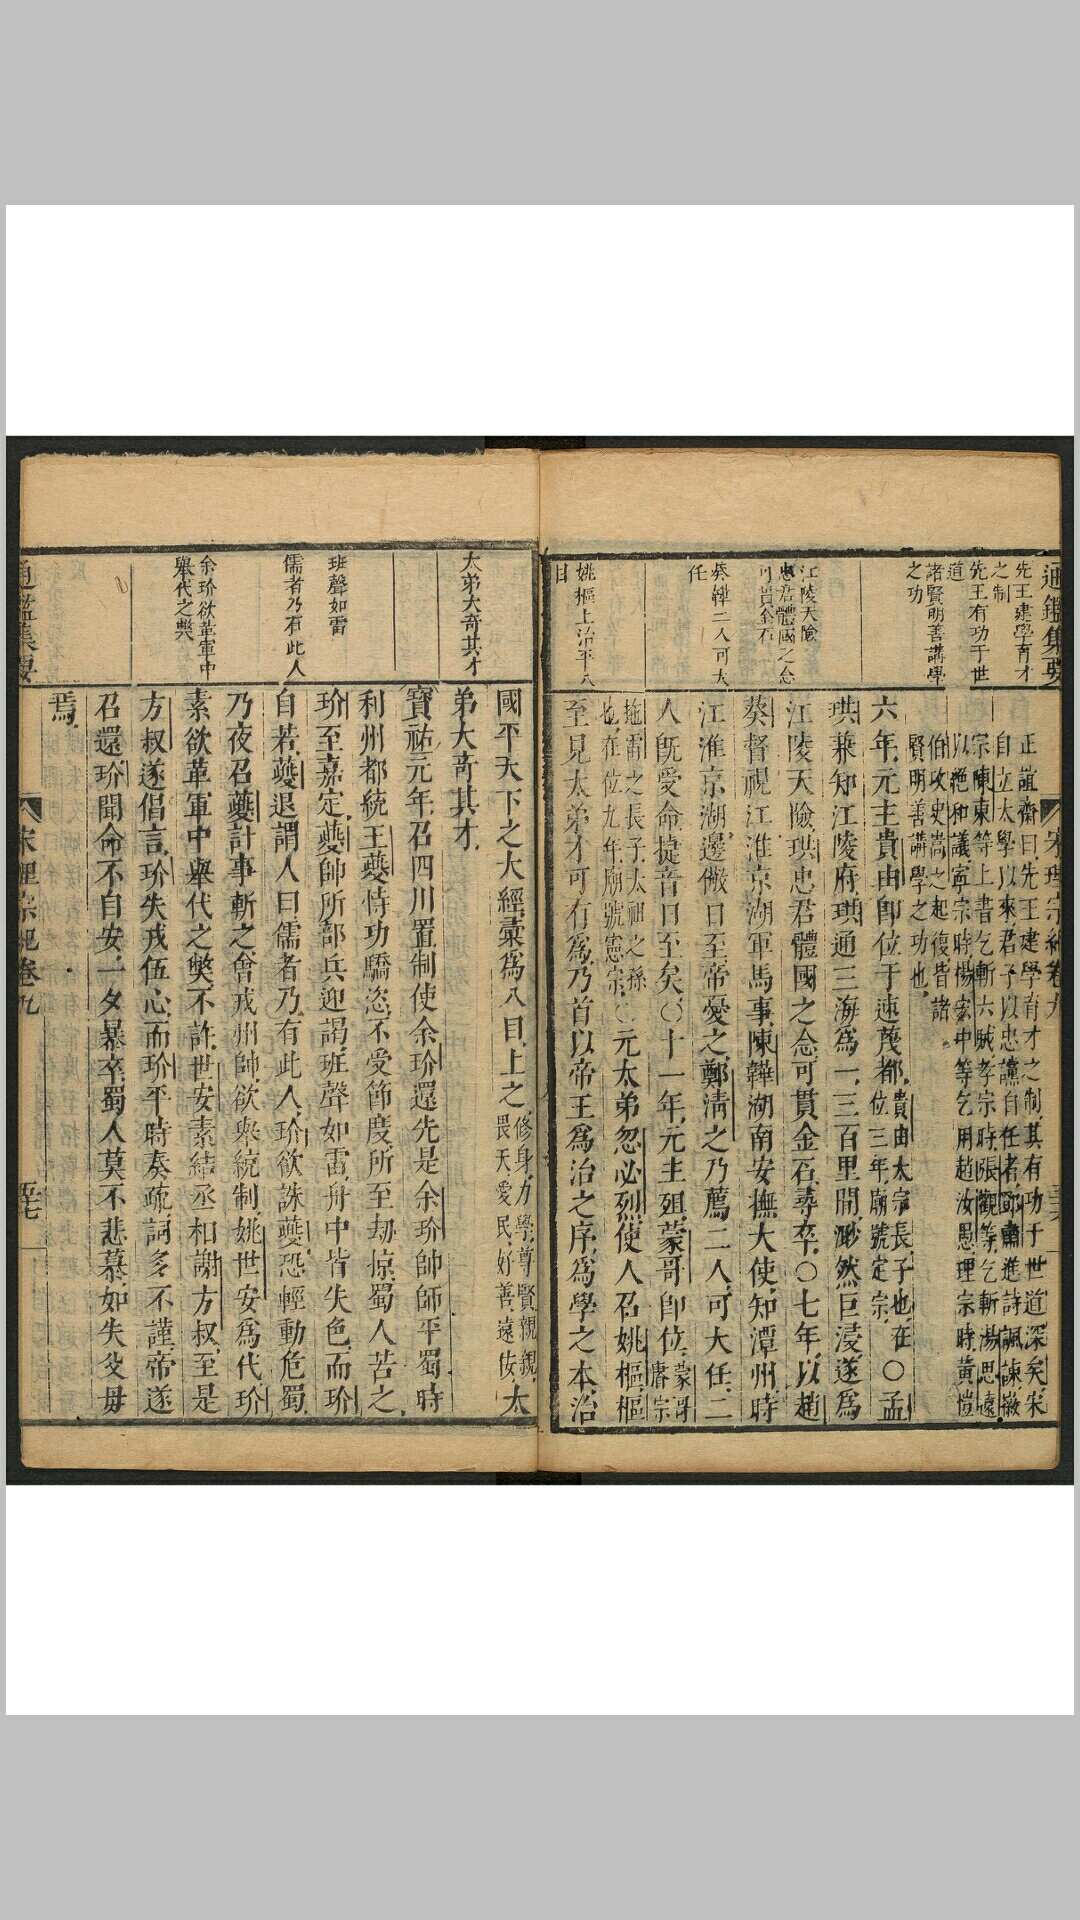 通鑑集要
宋理宗紀卷九
先王建學育才
之制
先王有功于世
道
諸賢明善講學
之功
江陵天險
忠君體國之念
可貫金石
葵韡二人可大
任
姚樞上治平八
目
正誼齋曰先王建學育才之制其有功于世道深矣宋
自立太學以來君子以忠讜自任者鄧肅進詩諷諫徽
宗陳東等上書乞斬六賊孝宗時張觀等乞斬湯思退
以絕和議寧宗時楊宏中等乞用趙汝愚理宗時黃愷
伯攻史嵩之起復皆諸
賢明善講學之功也
六年元主貴由卽位于速蔑都貴由太宗長子也在
位三年廟號定宗○孟
珙兼知江陵府珙通三海為一三百里間渺然巨浸遂為
江陵天險珙忠君體國之念可貫金石尋卒○七年以趙
葵督視江淮京湖軍馬事陳韡湖南安撫大使知潭州時
江淮京湖邊儆日至帝憂之鄭清之乃薦二人可大任二
人旣受命捷音日至矣○十一年元主殂蒙哥卽位蒙哥
睿宗
拖雷之長子太祖之孫
也在位九年廟號憲宗○元太弟忽必烈使人召姚樞樞
至見太弟才可有為乃首以帝王為治之序為學之本治
太弟大奇其才
班聲如雷
儒者乃有此人
余玠欲革軍中
舉代之獘
國平天下之大經彙為八目上之修身力學尊賢親親
畏天愛民好善遠佞太
弟大奇其才
寶祐元年召四川置制使余玠還先是余玠帥師平蜀時
利州都統王夔恃功驕恣不受節度所至劫掠蜀人苦之
玠至嘉定夔帥所部兵迎謁班聲如雷舟中皆失色而玠
自若夔退謂人曰儒者乃有此人玠欲誅夔恐輕動危蜀
乃夜召夔計事斬之會戎州帥欲舉統制姚世安為代玠
素欲革軍中舉代之獘不許世安素結丞相謝方叔至是
方叔遂倡言玠失戎伍心而玠平時奏疏詞多不謹帝遂
召還玠聞命不自安一夕暴卒蜀人莫不悲慕如失父母
焉
通鑑集要
宋理宗紀卷九
五十七